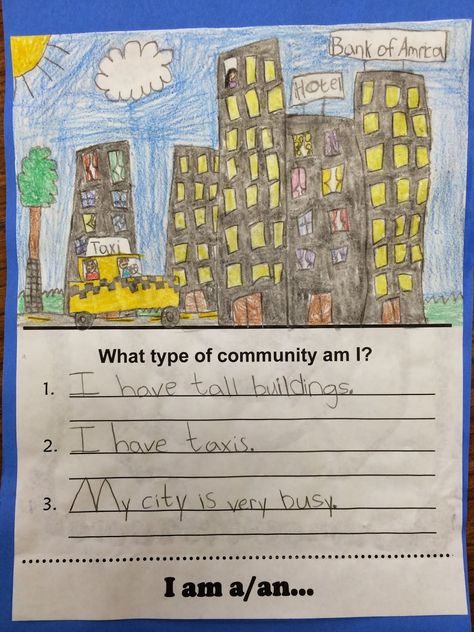 Bank of Amrica
Hotel
Taxi
What type of community am I?
1. I have tall buildings.
2. I have taxis.
3. My city is very busy.
I am a/an...